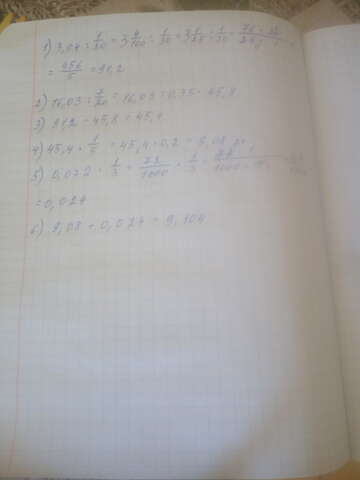 1) 3,04 : 1/30 = 3 4/100 : 1/30 = 3 1/25 : 1/30 = 76 · 30 / 25 · 1 =
= 456/5 = 91,2
2) 16,03 : 7/20 = 16,03 : 0,35 = 45,8
3) 91,2 - 45,8 = 45,4
4) 45,4 · 1/5 = 45,4 · 0,2 = 9,08
5) 0,072 · 1/3 = 72/1000 · 1/3 =
= 0,024
6) 9,08 + 0,024 = 9,104